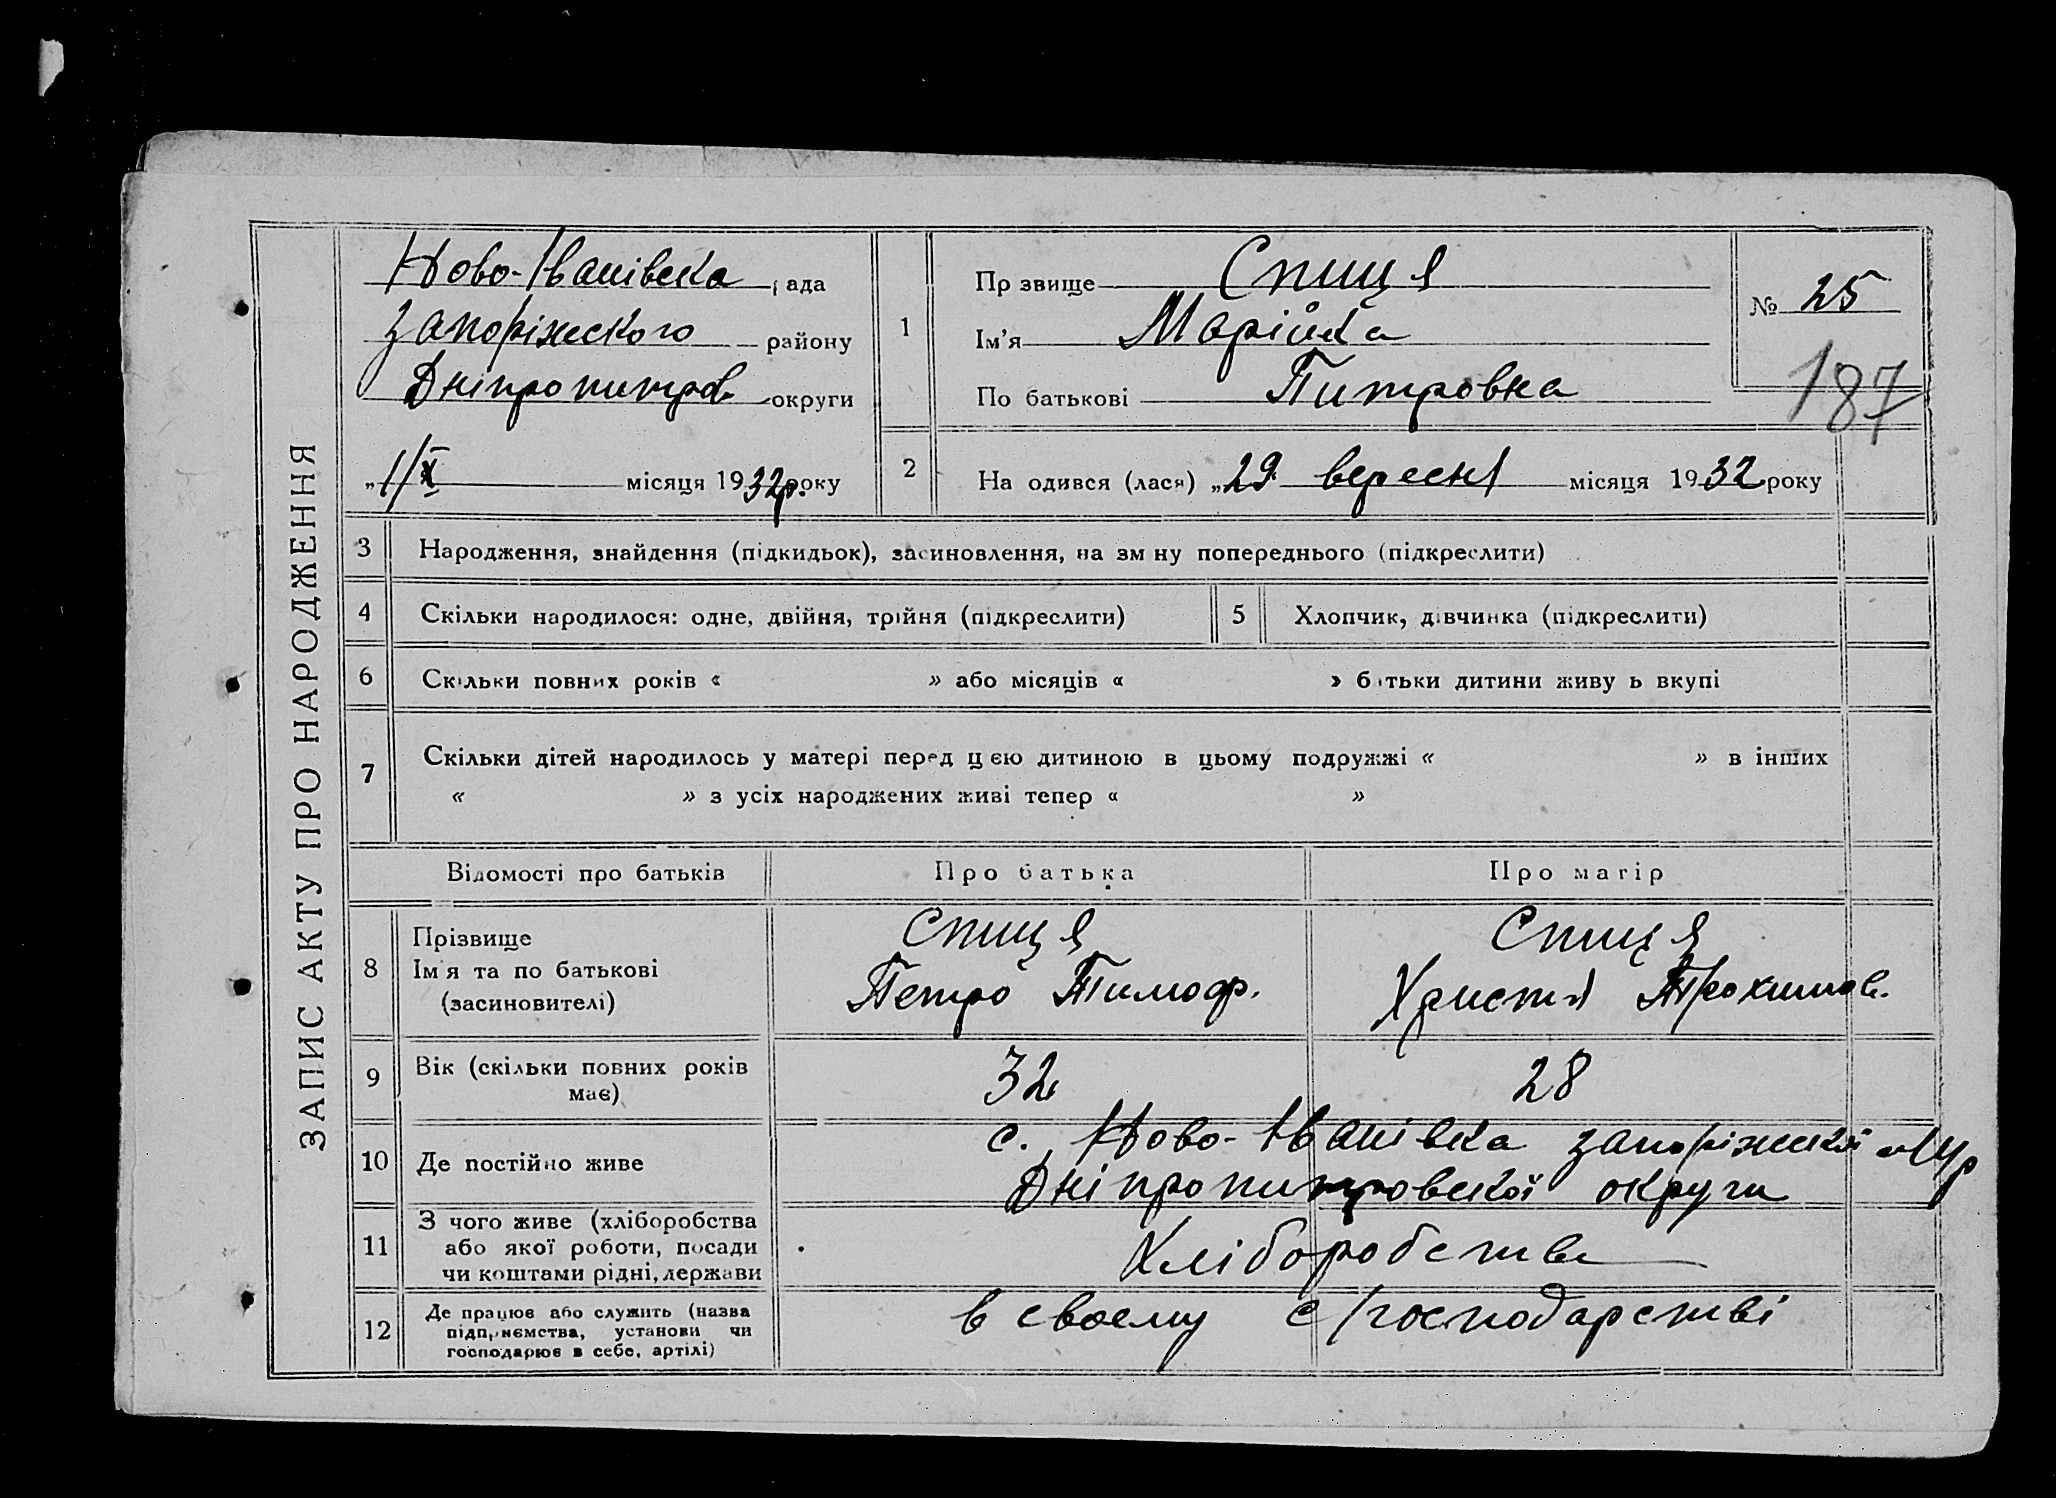 ЗАПИС АКТУ ПРО НАРОДЖЕННЯ
Ново-Іванівська рада
Запоріжського району
Дніпропитров. округи
„1/X місяця 1932р. року
1
Пр звище Спиця
Ім'я Марійка
По батькові Питровна
№ 25
187
2
На одився (лася) „29 вересня місяця 1932 року
3 Народження, знайдення (підкидьок), засиновлення, на зм ну попереднього (підкреслити)
4 Скільки народилося: одне, двійня, трійня (підкреслити)
5 Хлопчик, дівчинка (підкреслити)
6 Скільки повних років « » або місяців « » батьки дитини живу ь вкупі
7 Скільки дітей народилось у матері перед цією дитиною в цьому подружжі « » в інших
« » з усіх народжених живі тепер « »
Відомості про батьків Про батька Про матір
8 Прізвище
Ім'я та по батькові
(засиновителі)
Спиця
Петро Тимоф.
Спиця
Христя Трохимов.
9 Вік (скільки повних років
має)
32
28
10 Де постійно живе
с. Ново-Іванівка Запоріжської
Дніпропитровської округи
11 З чого живе (хліборобства
або якої роботи, посади
чи коштами рідні, держави
Хліборобство
12 Де працює або служить (назва
підприємства, установи чи
господарює в себе, артілі)
в своєму с/господарстві